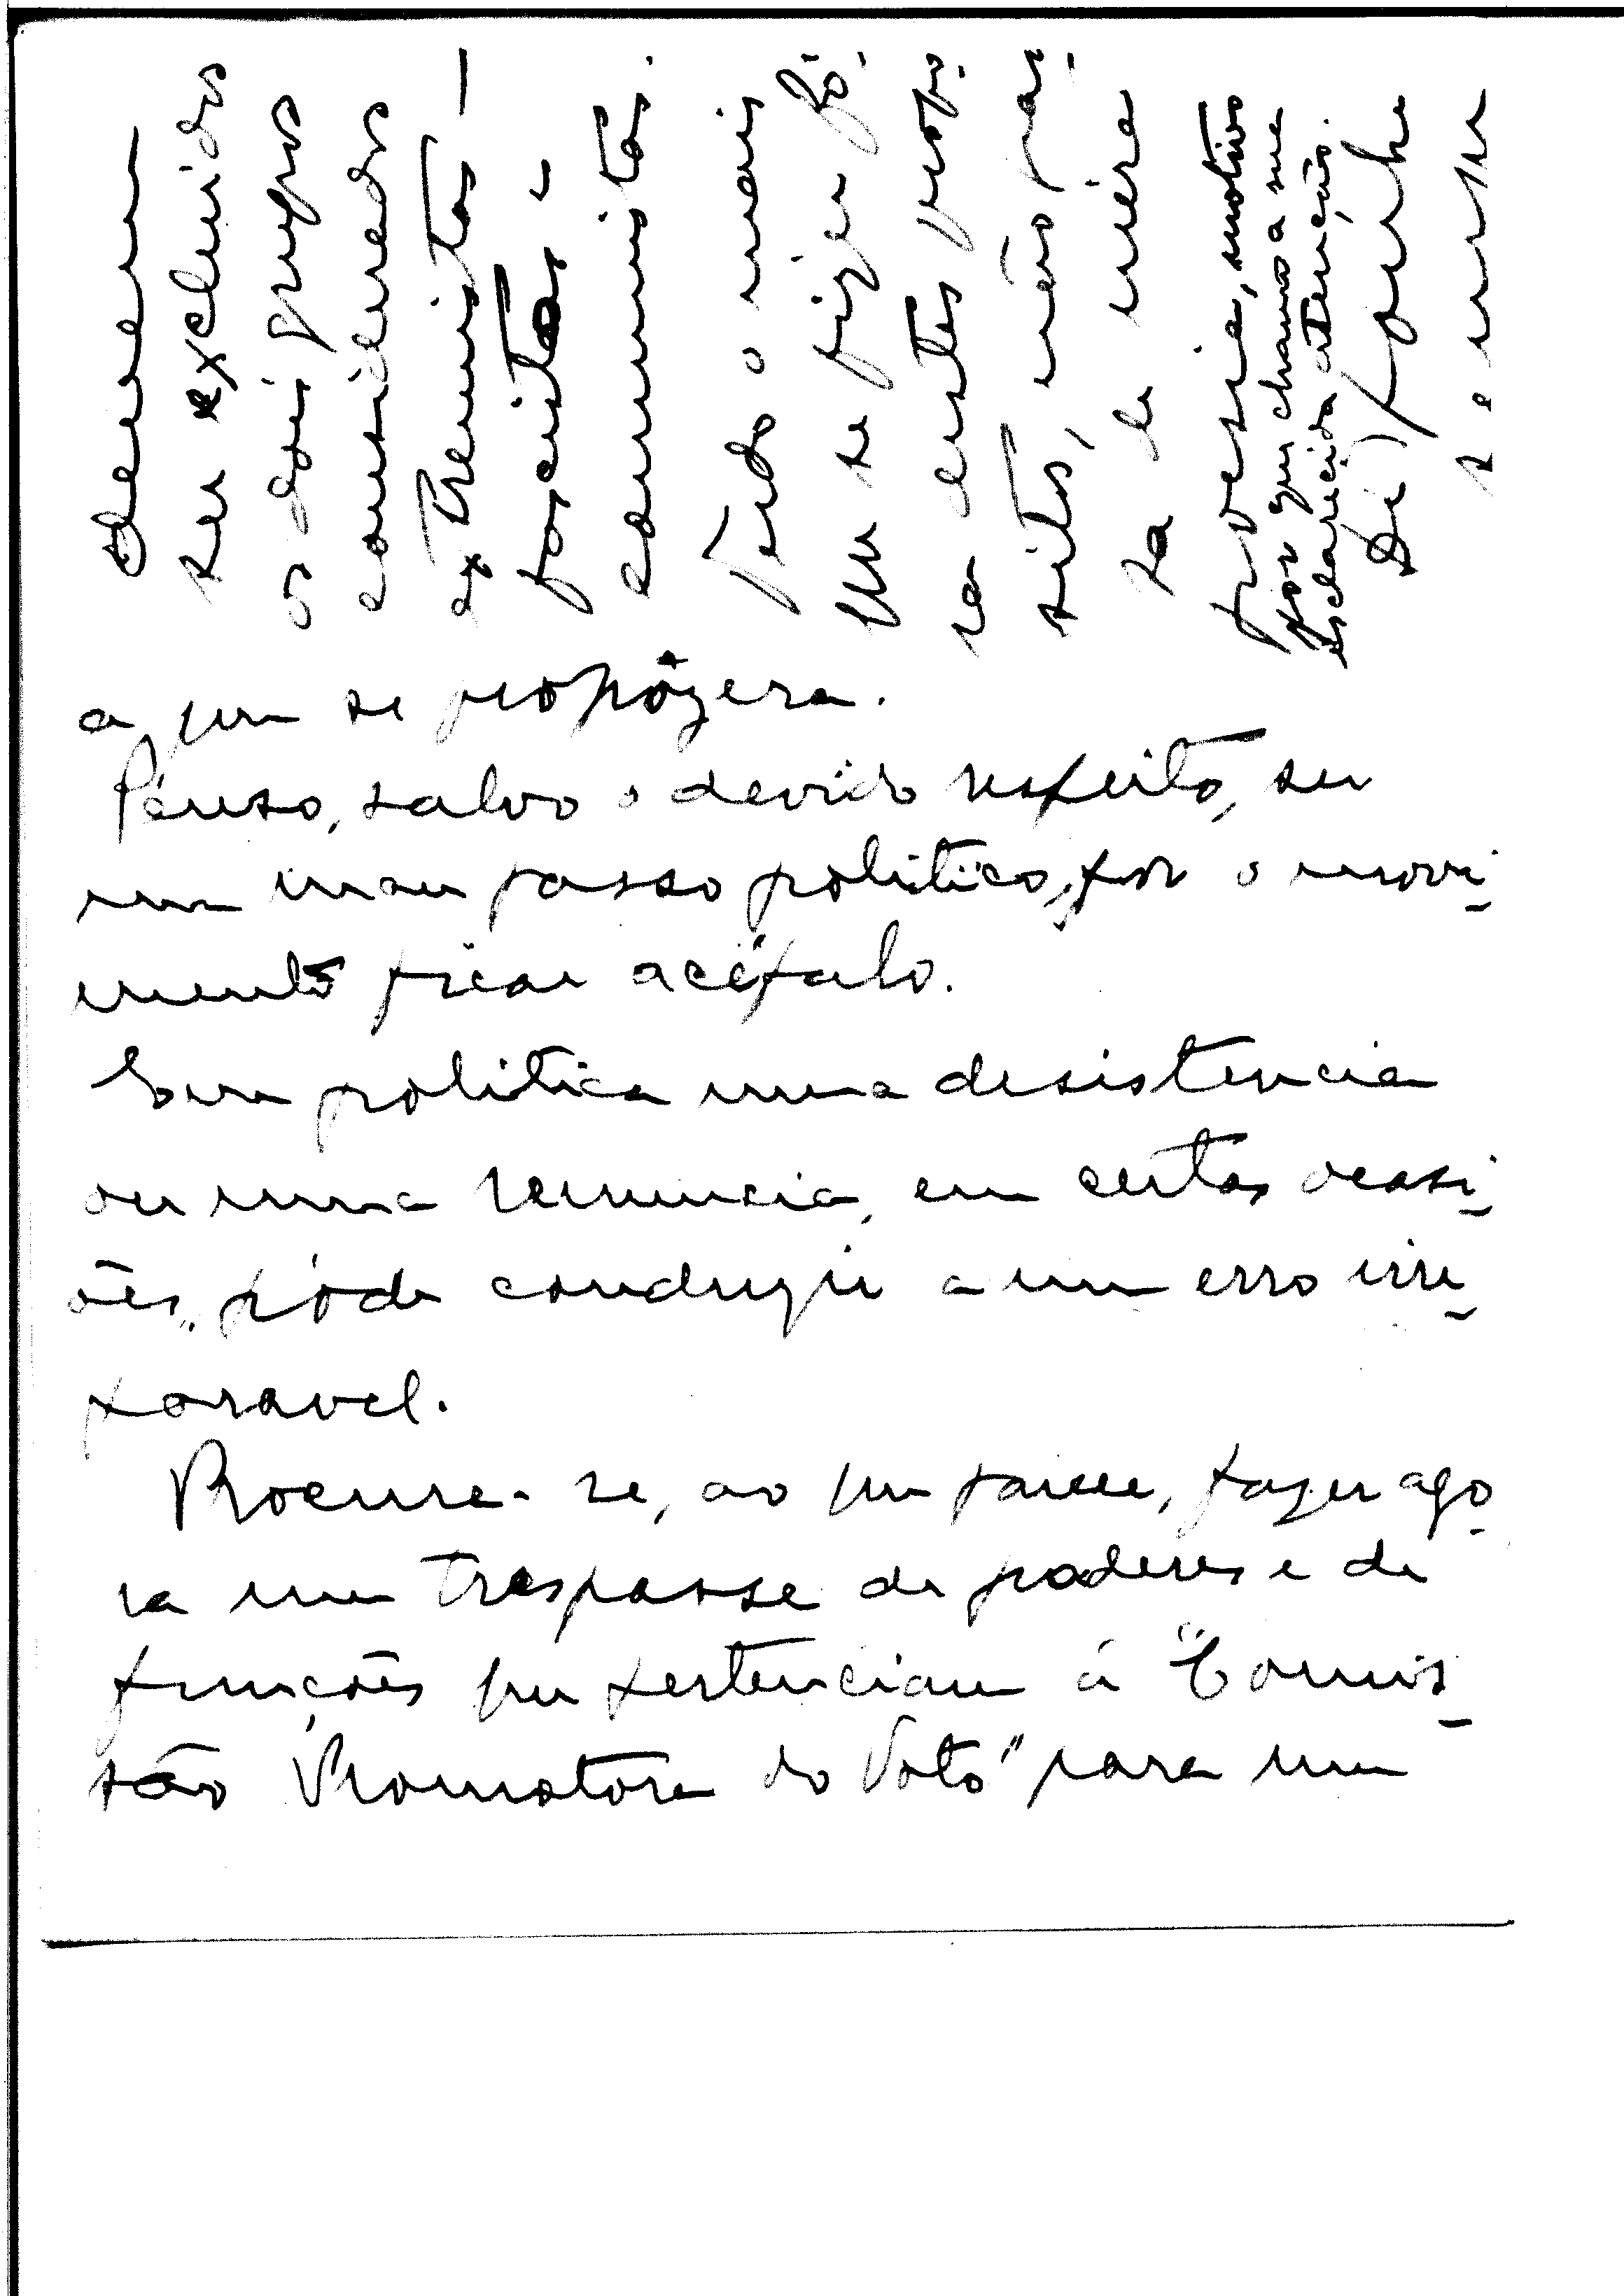 devem
ser excluidos
os dois grupos
considerados
extremistas —
fascistas e
comunistas.
Tudo o mais
que se fizer fó-
ra destes propó-
sitos, não pas-
sa de mera
poesia, motivos
por que chamo a sua
esclarecida atenção.
Di) ponho
se e
a que se propózera.
Penso, salvo o devido respeito, ser
um mau passo politico, por o movi-
mento ficar acéfalo.
Em politica uma desistencia
ou uma renuncia, em certas ocasi-
ões, póde conduzir a um erro irre-
paravel.
Procura-se, ao que parece, fazer ago-
ra um trespasse de poderes e de
funções que pertenciam á "Comis-
são Promotora do Voto" para um